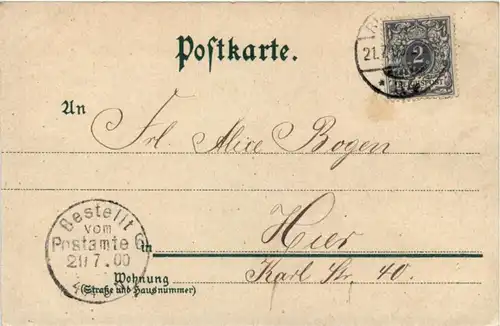 Postkarte.
21.7.00
2
An
Frl Alice Bogen
Bestellt
vom
Postamte 6
21 7.00
in
Hier
Wohnung
(Straße und Hausnummer)
Karl Str. 40.